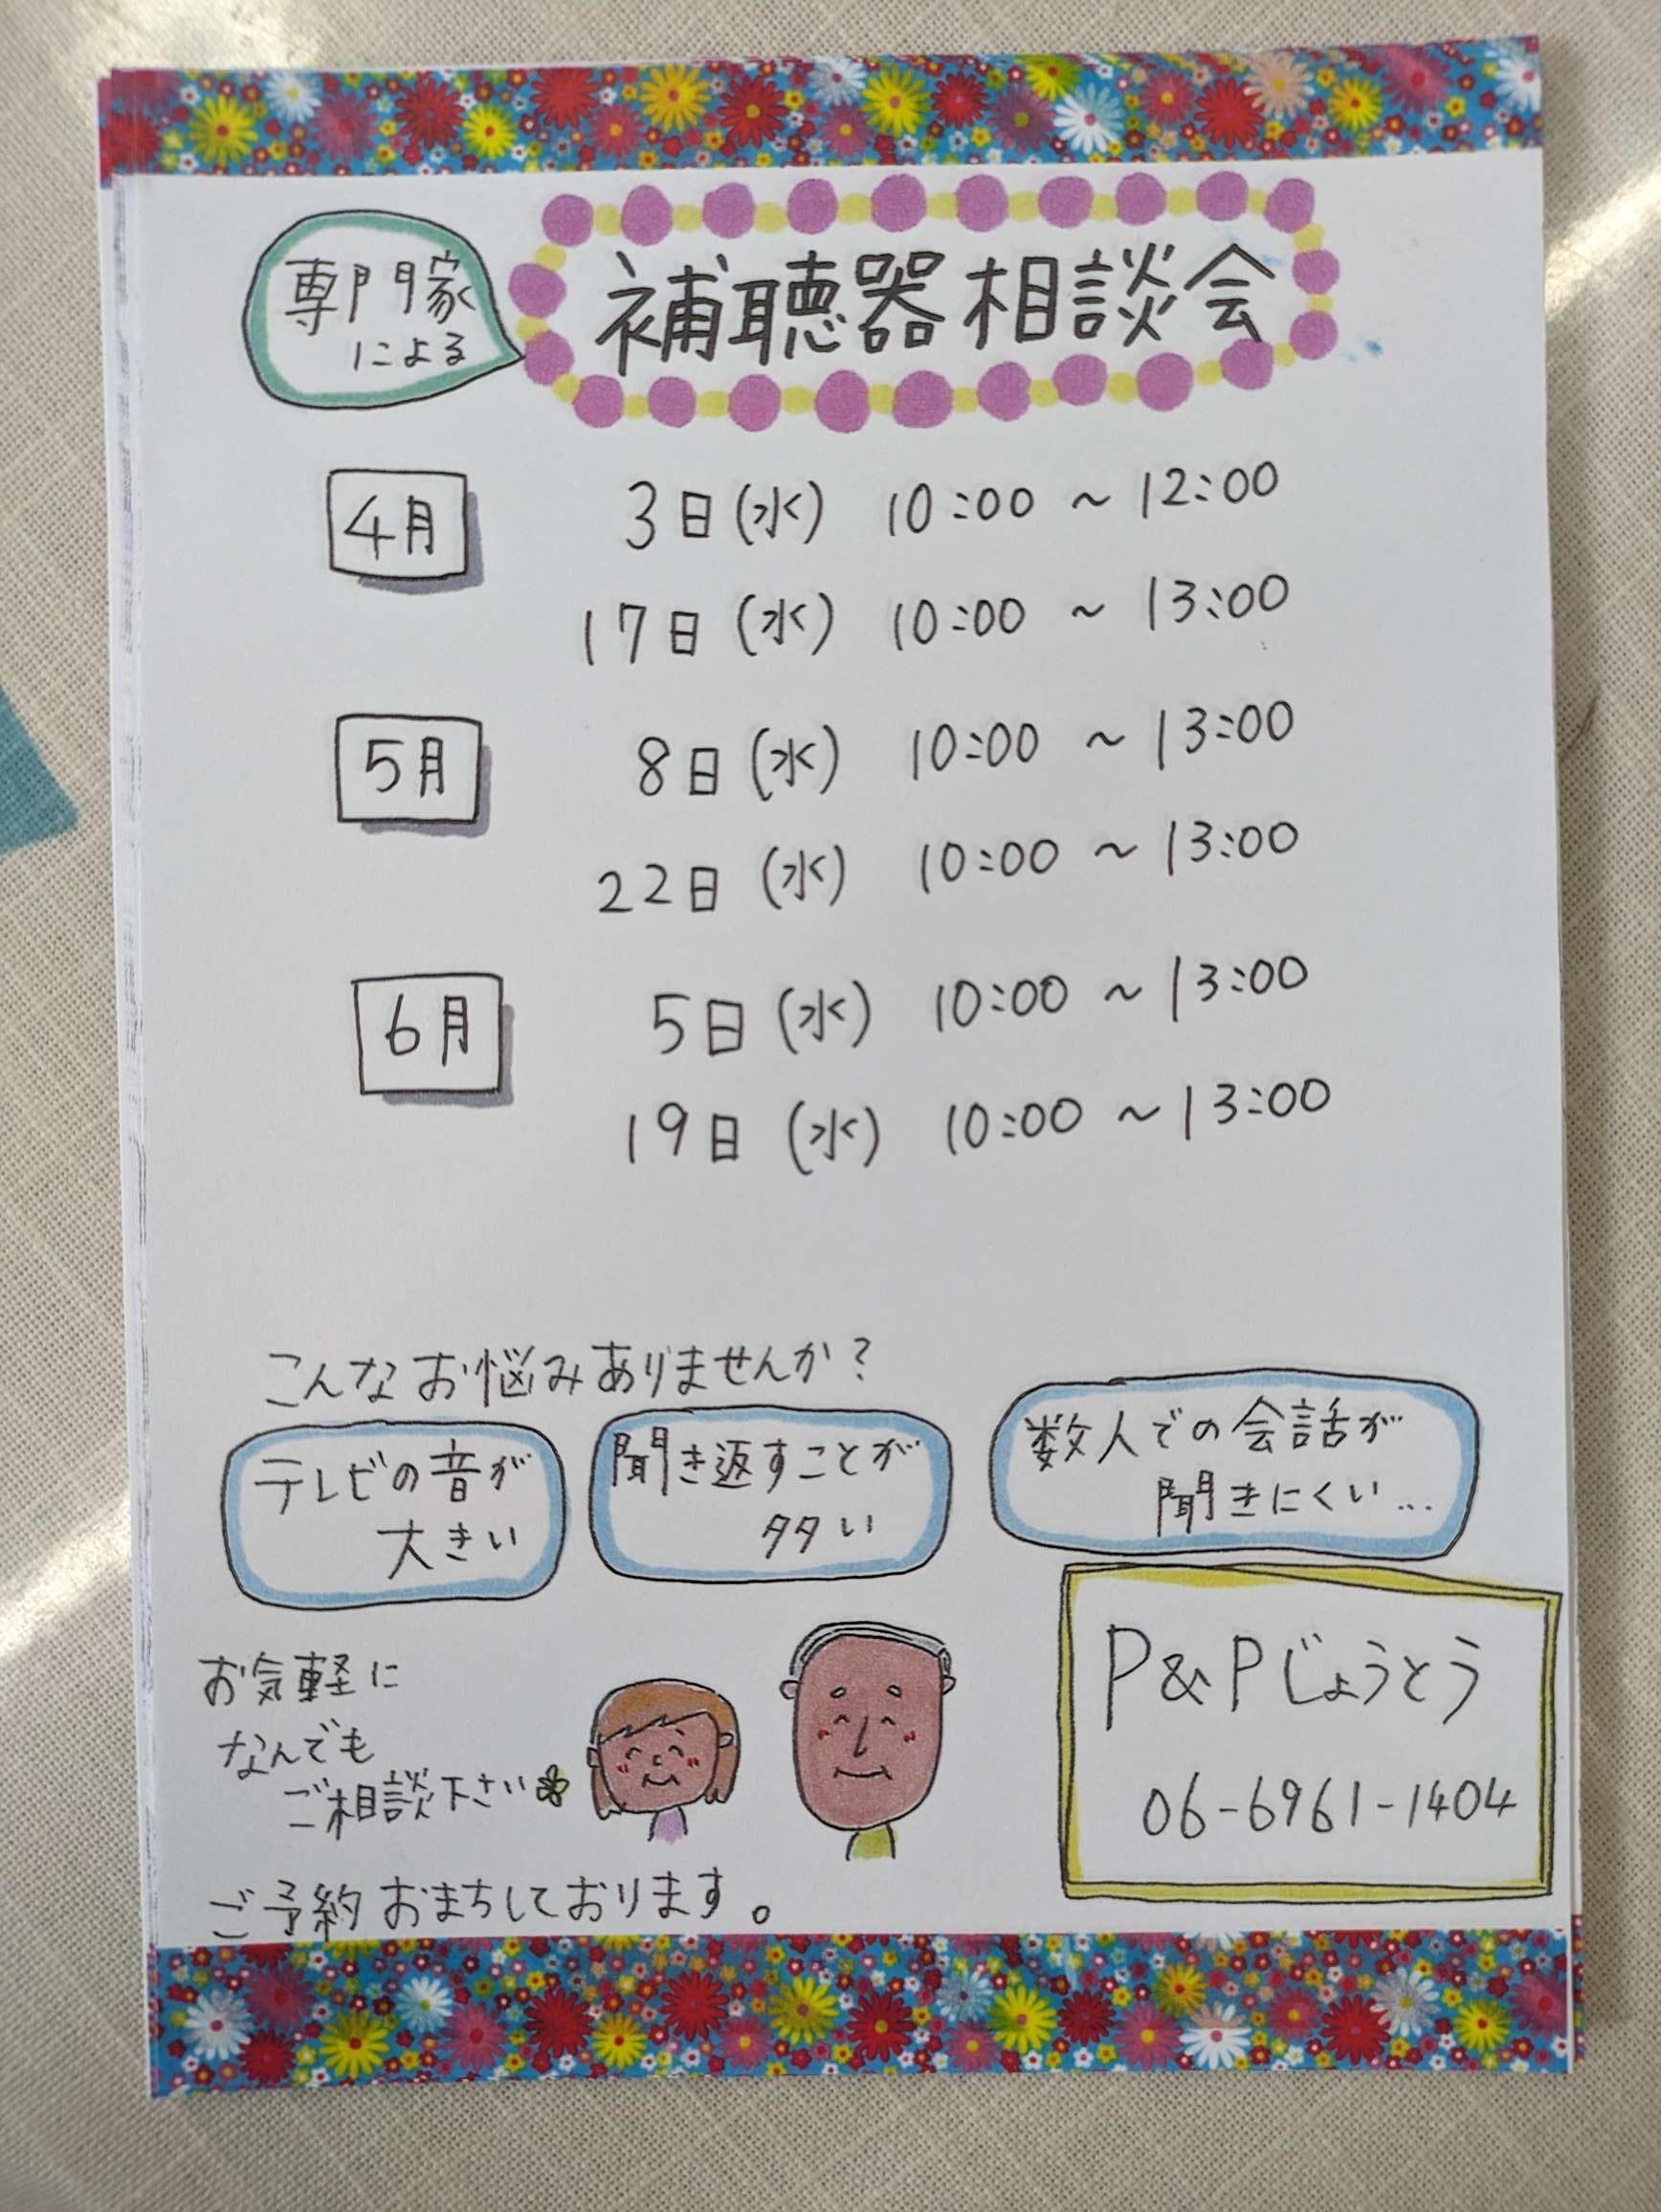 専門家
による
補聴器相談会
4月 3日(水) 10:00 ~ 12:00
17日(水) 10:00 ~ 13:00
5月 8日(水) 10:00 ~ 13:00
22日(水) 10:00 ~ 13:00
6月 5日(水) 10:00 ~ 13:00
19日(水) 10:00 ~ 13:00
こんなお悩みありませんか?
テレビの音が
大きい
聞き返すことが
多い
数人での会話が
聞きにくい...
お気軽に
なんでも
ご相談下さい
ご予約おまちしております。
P&Pじょうとう
06-6961-1404